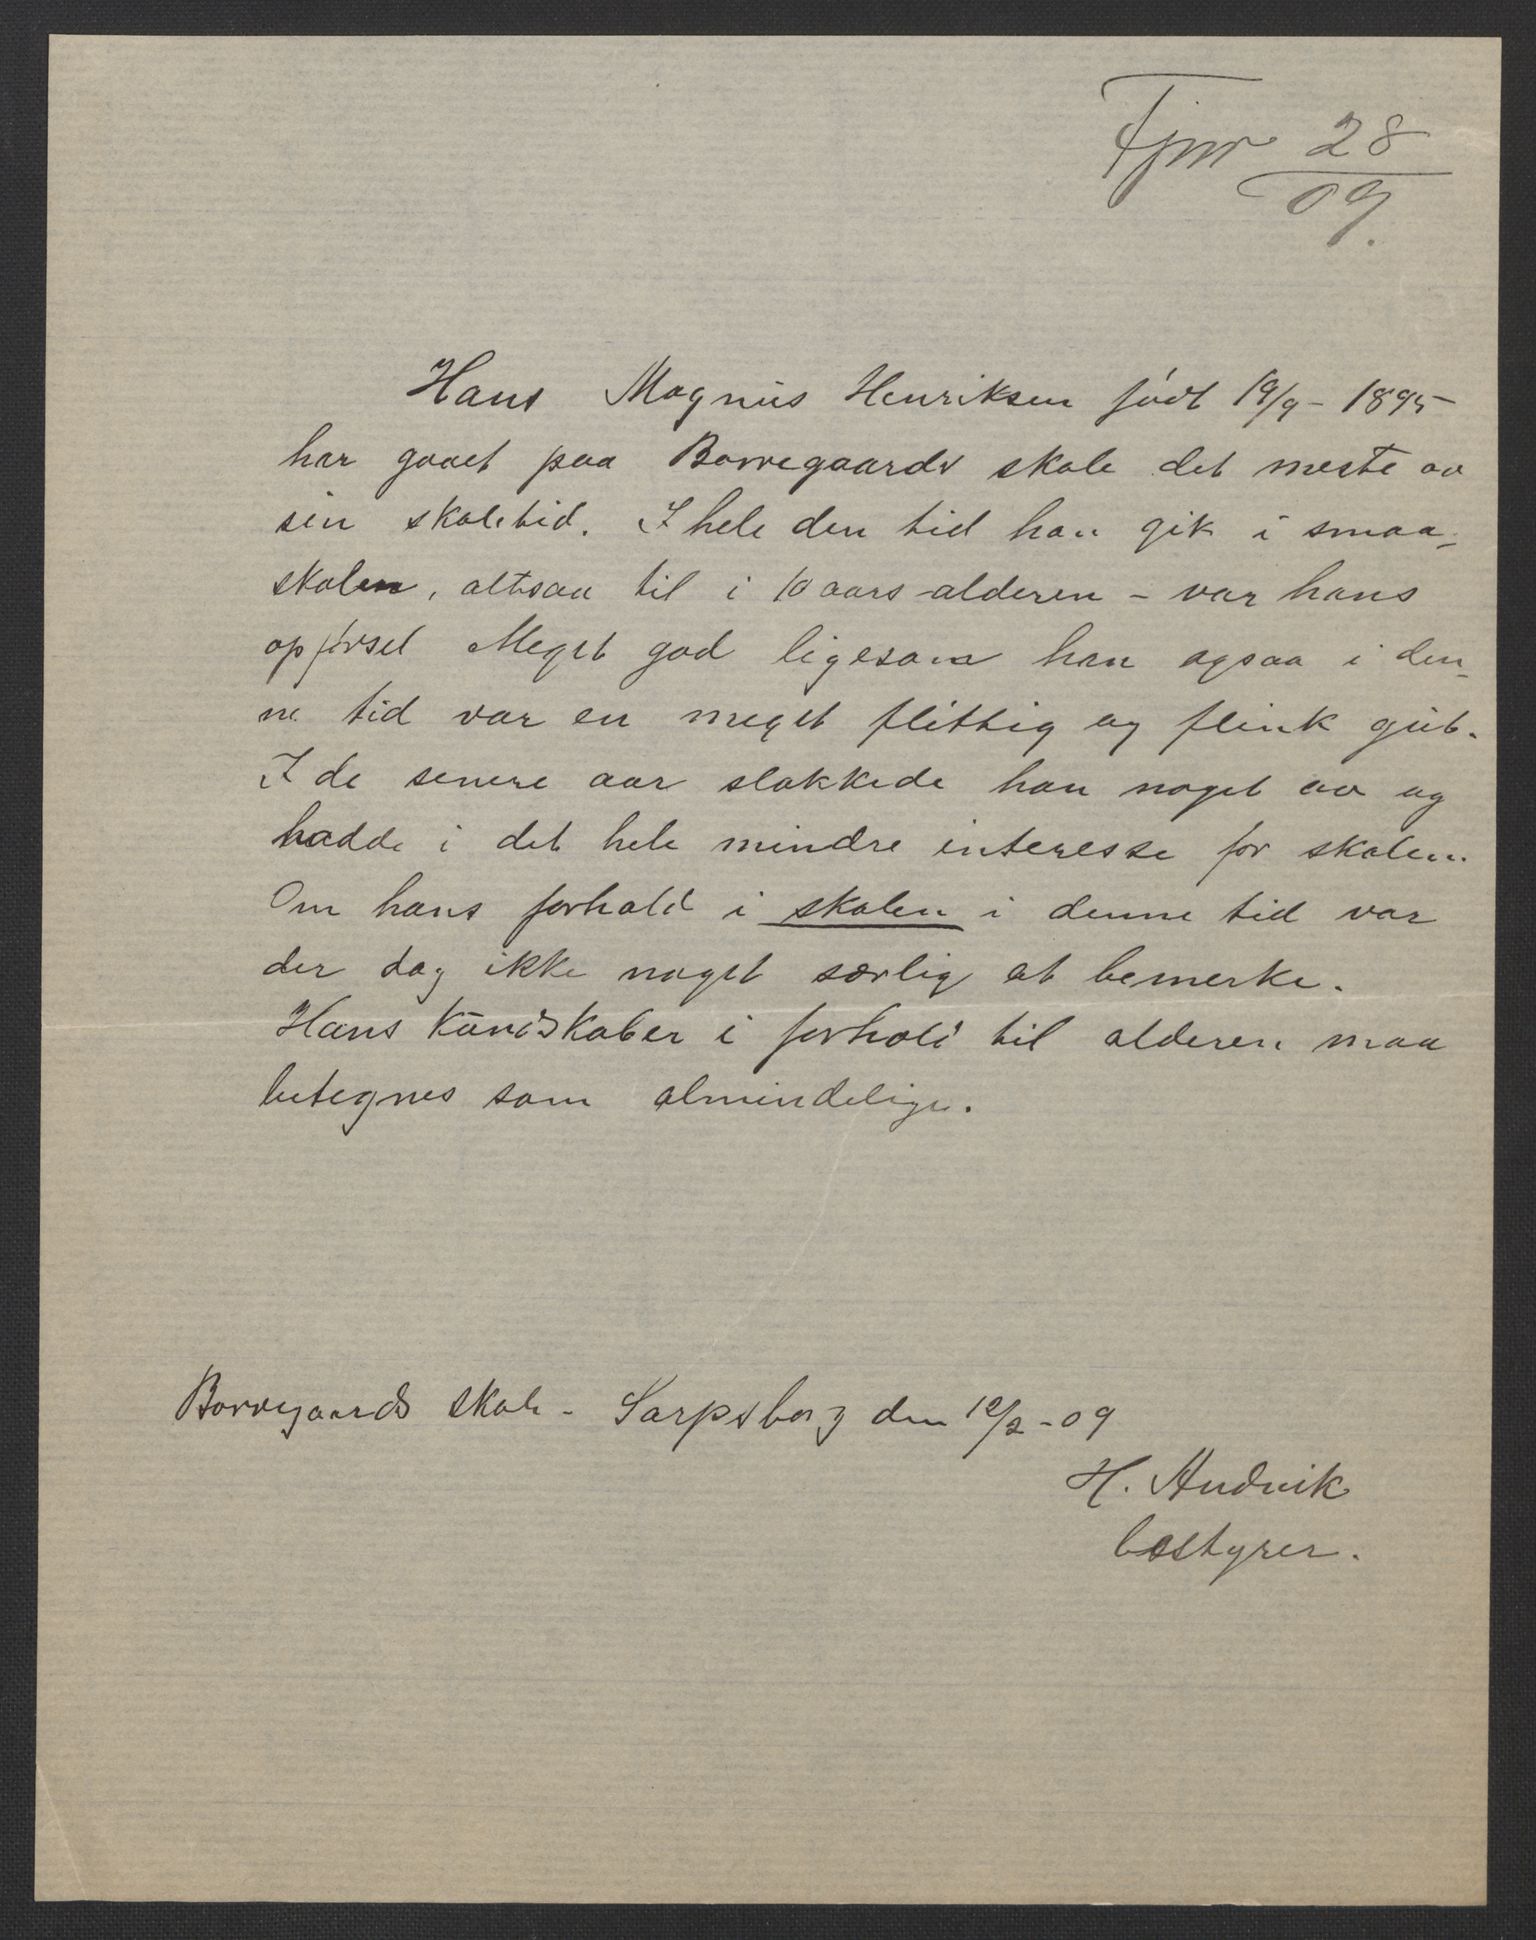 Fjnr 28
09.
Hans Magnus Henriksen født 19/9 - 1895
har gaaet paa Borregaards skole det meste av
sin skoletid. I hele den tid han gik i smaa-
skolen, altsaa til i 10 aars-alderen - var hans
opførsel Meget god ligesom han ogsaa i den-
ne tid var en meget flittig og flink gut.
I de senere aar slakkede han noget av og
hadde i det hele mindre interesse for skolen.
Om hans forhold i skolen i denne tid var
der dog ikke noget særlig at bemerke.
Hans kundskaber i forhold til alderen maa
betegnes som almindelige.
Borregaards skole - Sarpsborg den 12/2 - 09
H. Andvik
bestyrer.